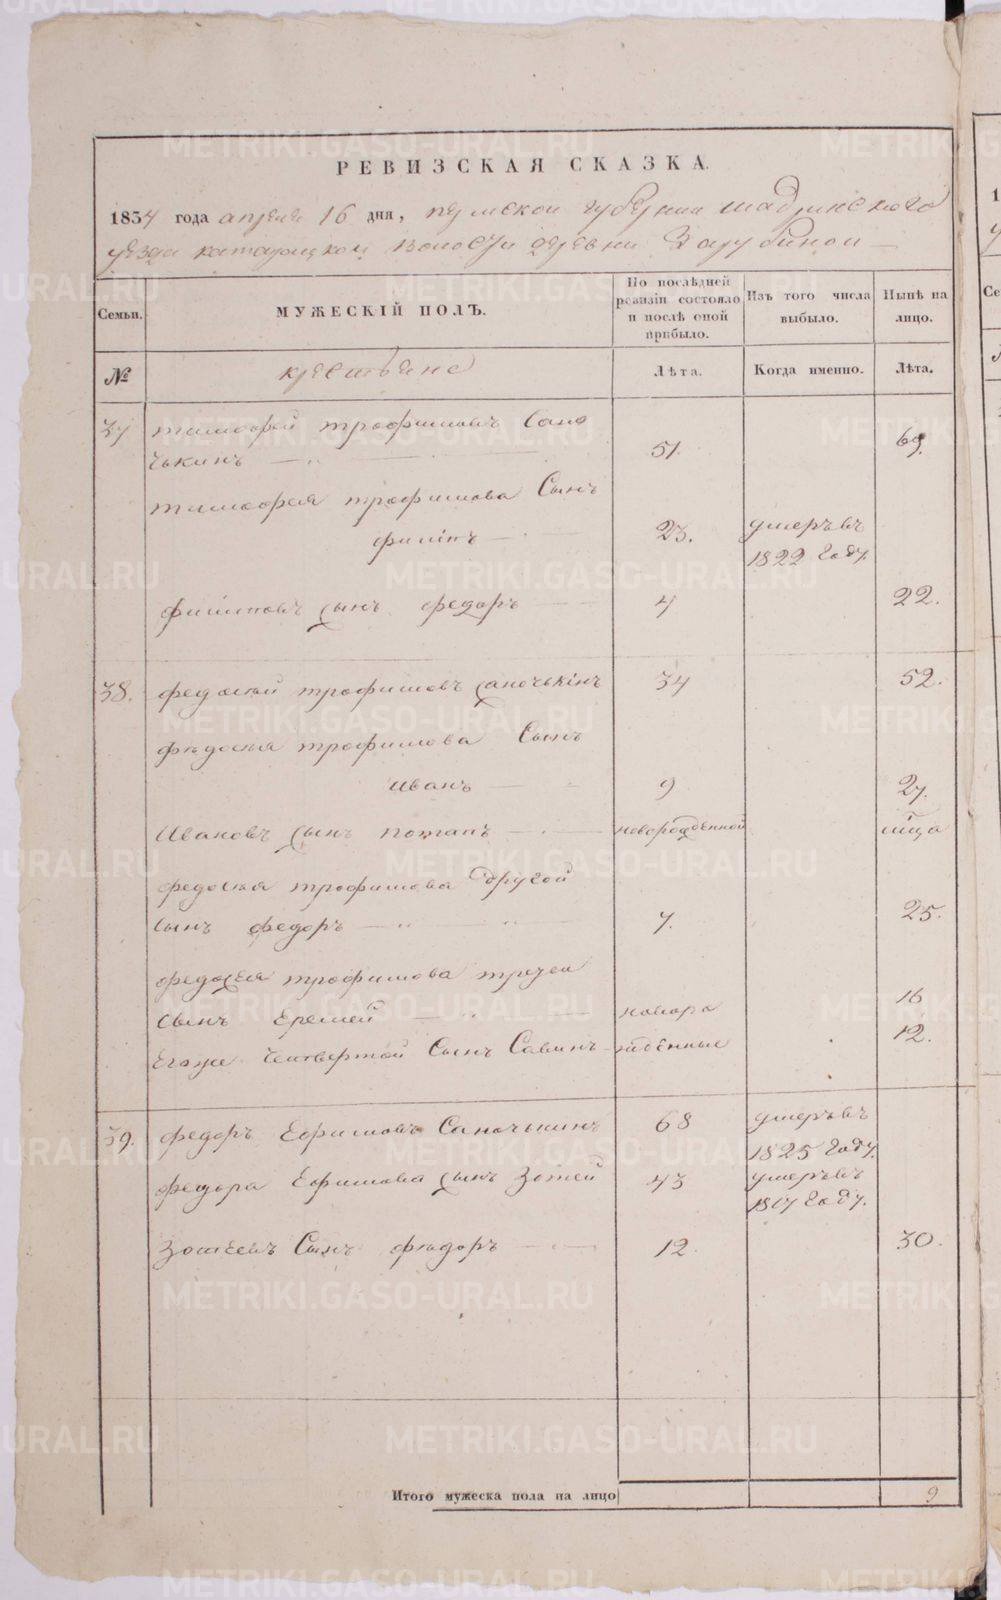 РЕВИЗСКАЯ СКАЗКА.
1834 года апреля 16 дня, пермской губернии шадринского
уезда катайцкой волости деревни Зарубиной
Семьи.
МУЖЕСКІЙ ПОЛЪ.
По послѣдней ревизіи состояло и послѣ оной прибыло.
Изъ того числа выбыло.
Нынѣ на лицо.
№
крестьяне
Лѣта.
Когда именно.
Лѣта.
37 тимофей трофимовъ Сано
чькинъ 51. 69.
тимофея трофимова Сынъ
филипъ 23. умеръ въ
1822 году.
филиповъ сынъ федоръ 4 22.
38. федосей трофимовъ саночькинъ 34 52.
федосея трофимова Сынъ
иванъ 9 27.
Ивановъ сынъ потапъ новорожденной
федосея трофимова другой
сынъ федоръ 7. 25.
федосея трофимова третей
сынъ Еремей новоро 16
Егоже Четвертой Сынъ Савинъ жденные 12.
39. федоръ Ефимовъ Саночькинъ 68 умеръ въ
1825 году.
федора Ефимова сынъ Зотей 43 умеръ въ
1817 году.
Зотеевъ Сынъ федоръ 12 30.
Итого мужеска пола на лицо 9
METRIKI.GASO-URAL.RU